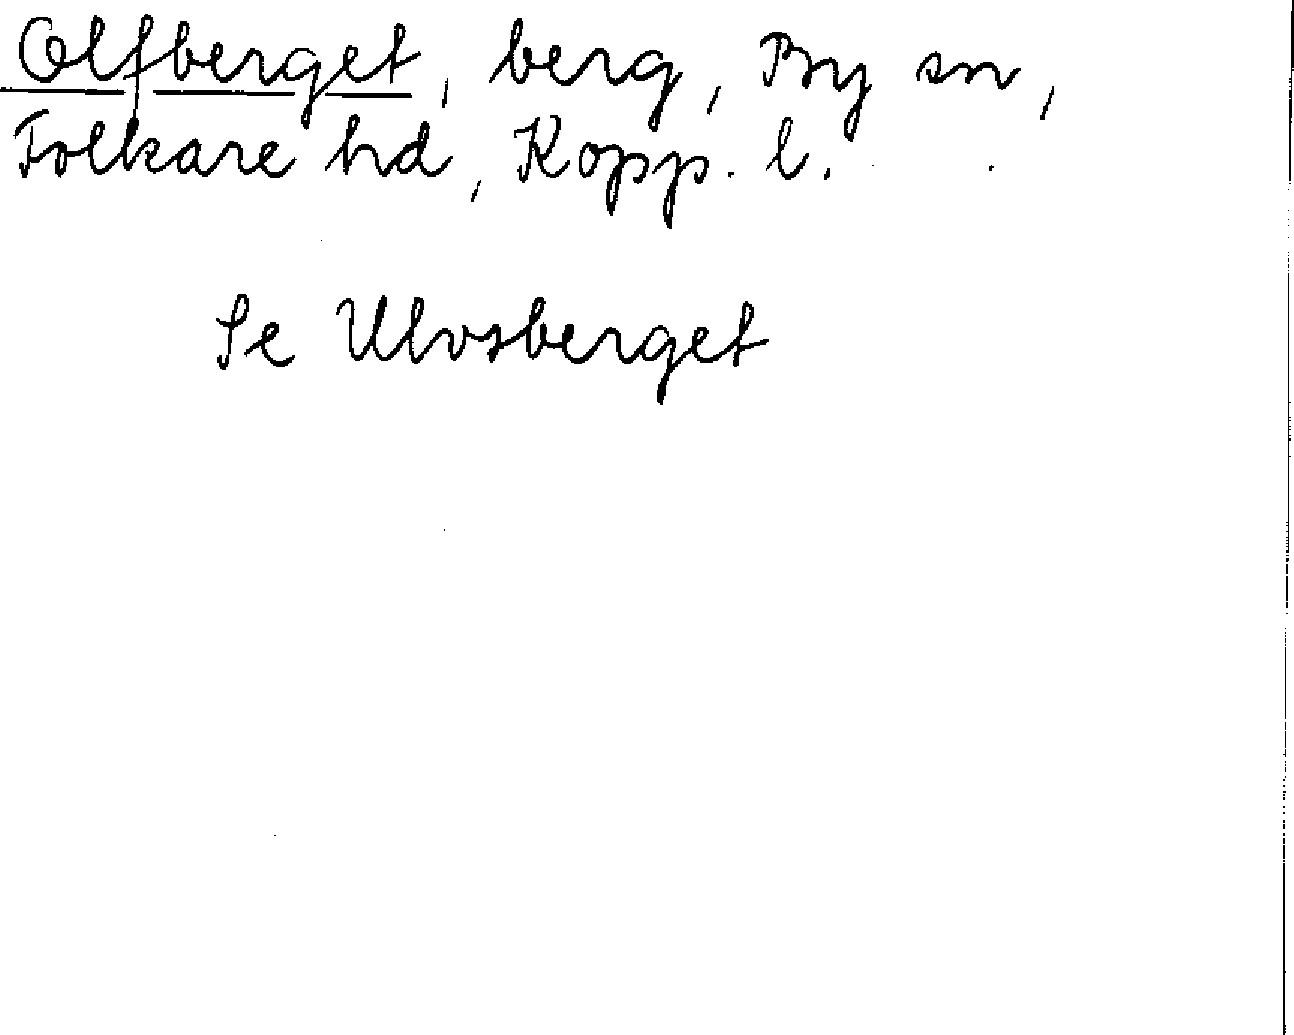 Olfberget, berg, By sn,
Folkare hd, Kopp. l.
Se Ulvsberget